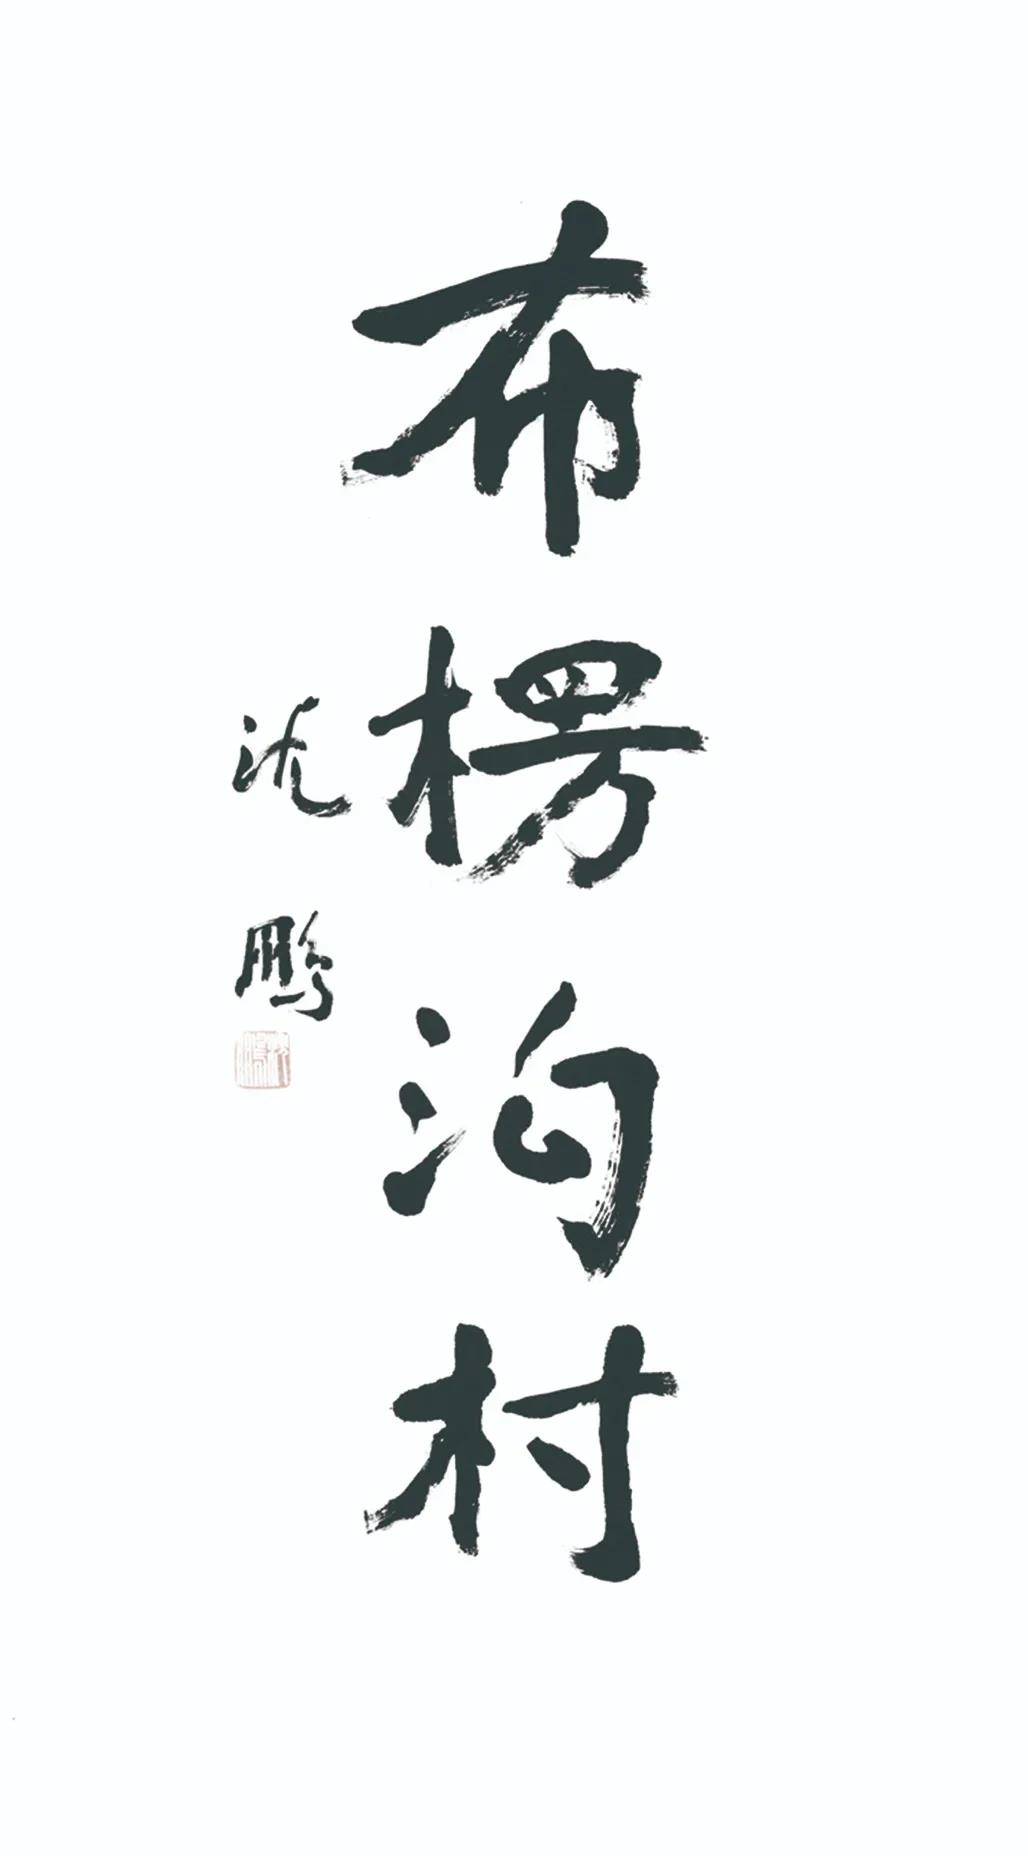 布楞沟村
沈鹏